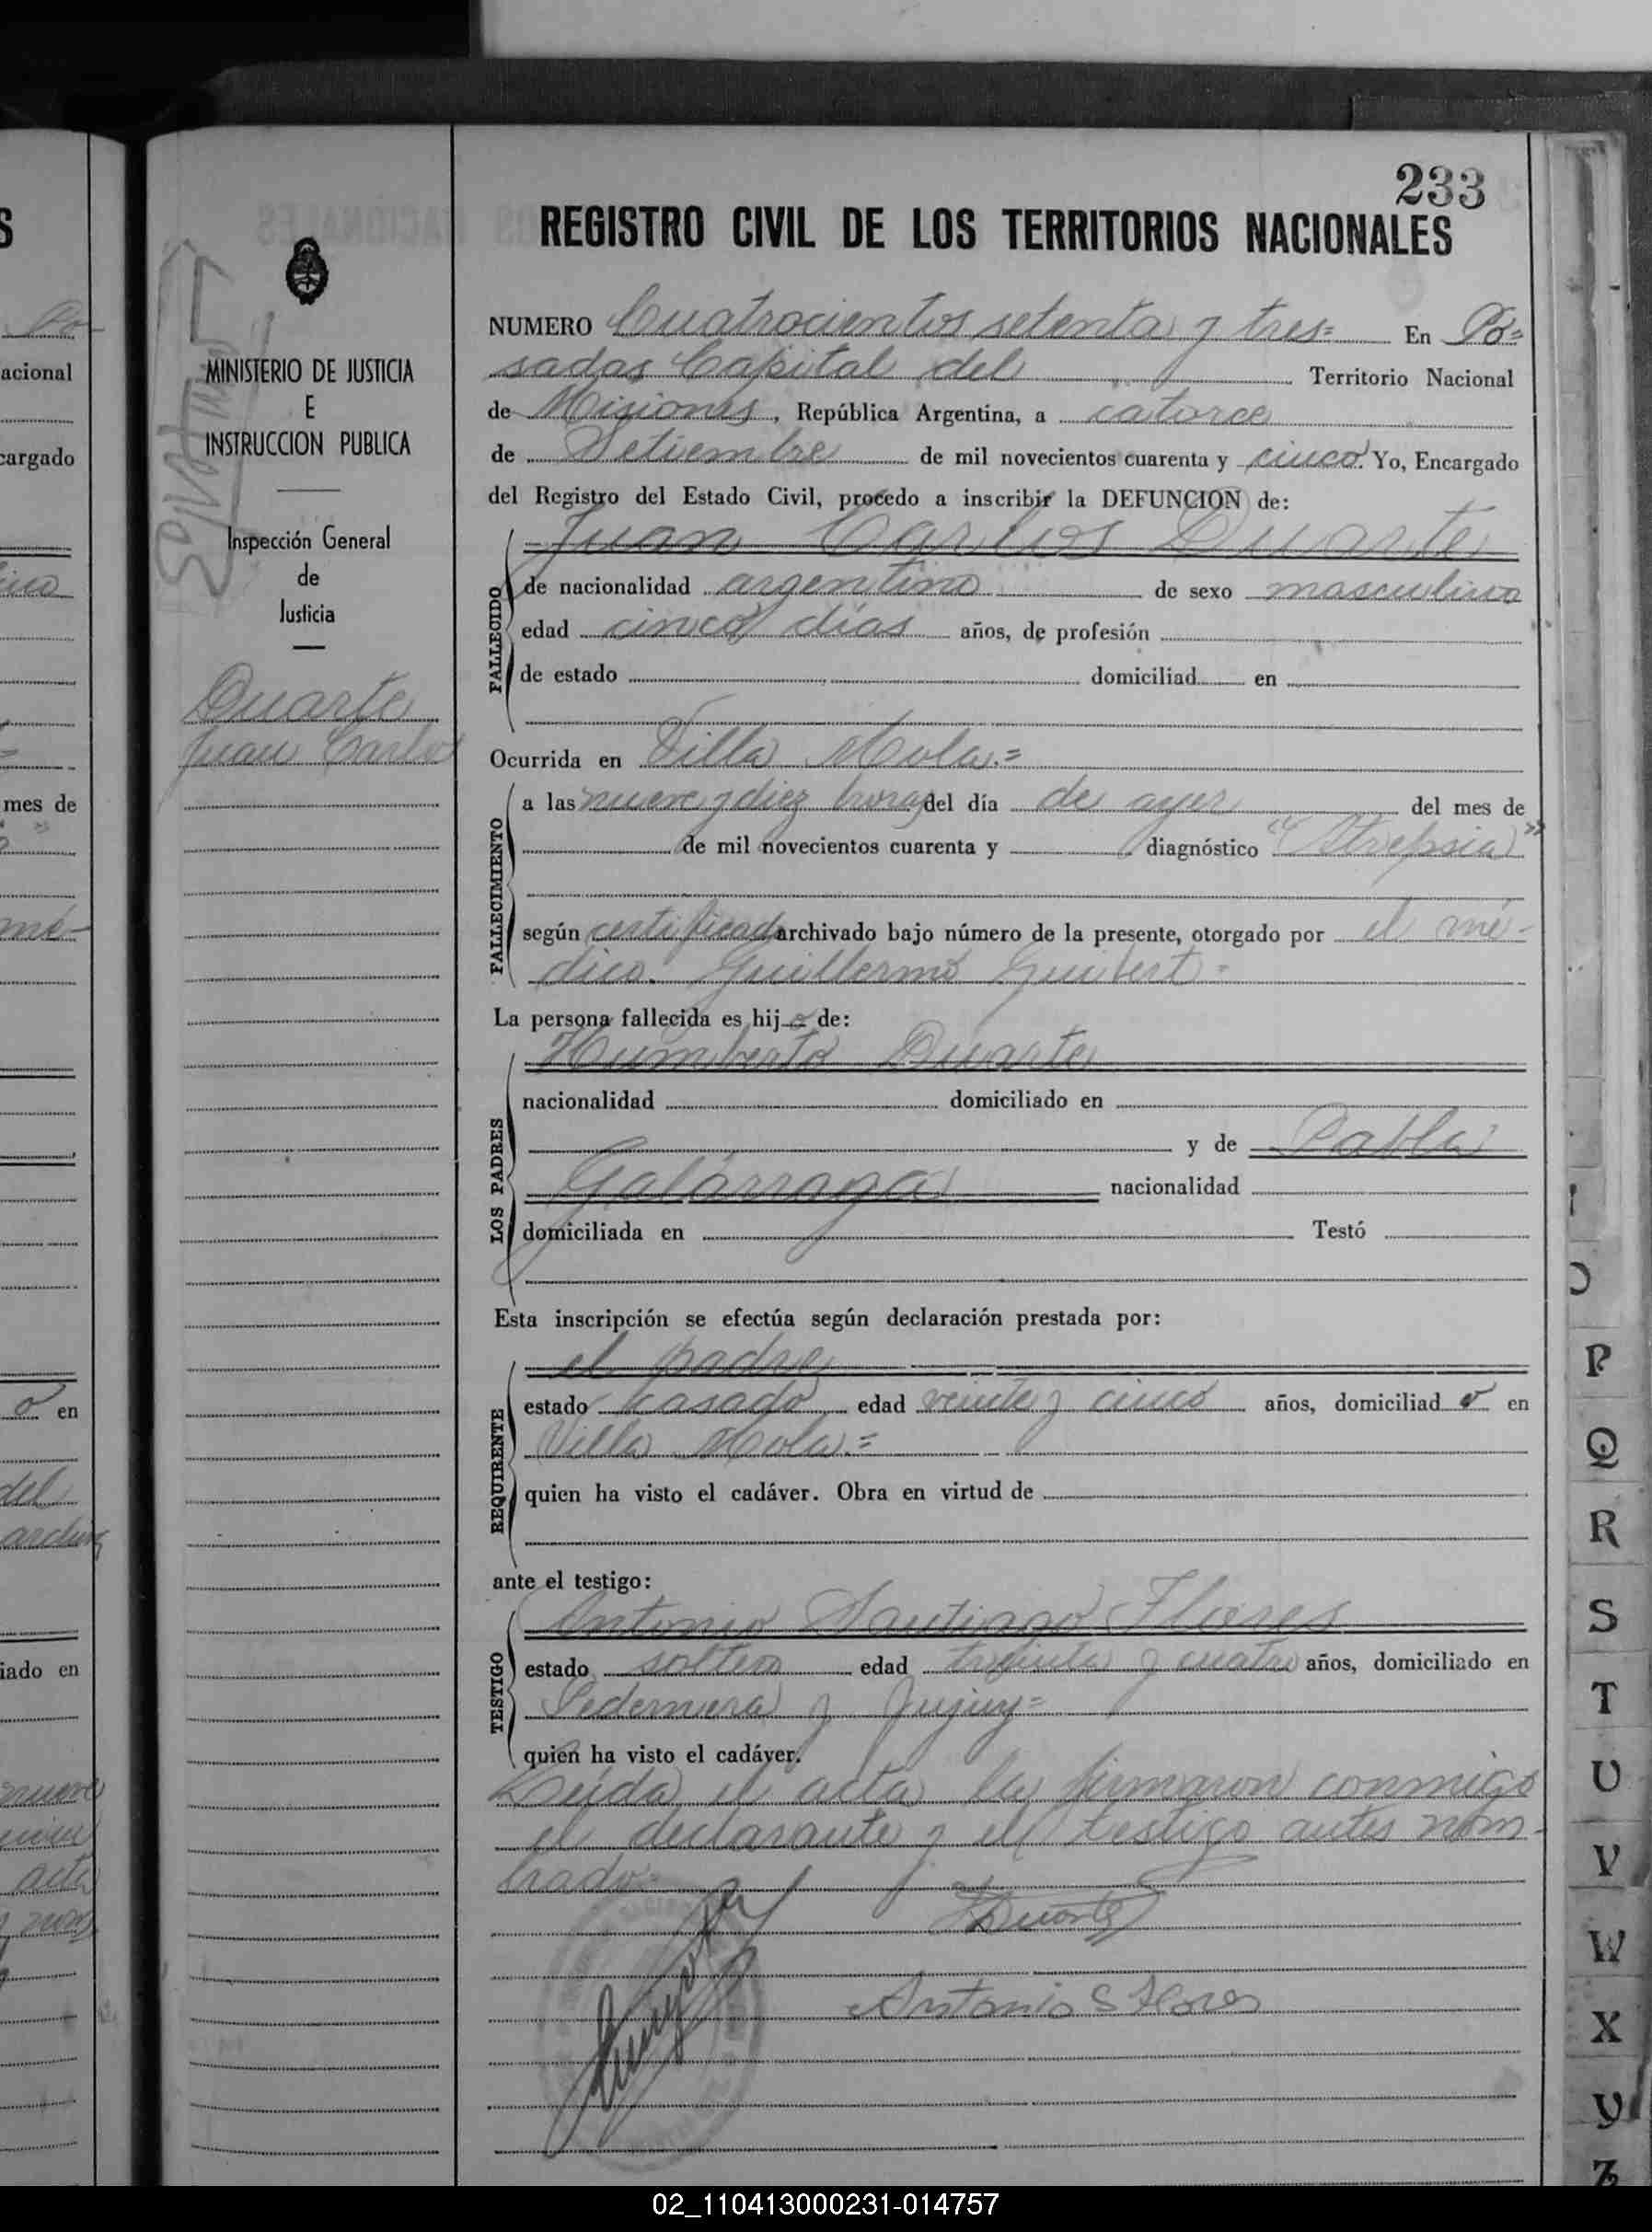 233
REGISTRO CIVIL DE LOS TERRITORIOS NACIONALES
MINISTERIO DE JUSTICIA
E
INSTRUCCION PUBLICA
Inspección General
de
Justicia
Duarte
Juan Carlos
NUMERO Cuatrocientos setenta y tres= En Po=
sadas Capital del Territorio Nacional
de Misiones, República Argentina, a catorce
de Setiembre de mil novecientos cuarenta y cinco. Yo, Encargado
del Registro del Estado Civil, procedo a inscribir la DEFUNCION de:
FALLECIDO
Juan Carlos Duarte
de nacionalidad argentino de sexo masculino
edad cinco días años, de profesión
de estado domiciliad en
Ocurrida en Villa Mola.=
FALLECIMIENTO
a las nueve y diez horas del día de ayer del mes de
de mil novecientos cuarenta y diagnóstico "Atrepsia"
según certificado archivado bajo número de la presente, otorgado por el mé-
dico. Guillermo Guibert-
La persona fallecida es hijo de:
LOS PADRES
Humberto Duarte
nacionalidad domiciliado en
y de Pabla
Galarraga nacionalidad
domiciliada en Testó
Esta inscripción se efectúa según declaración prestada por:
REQUIRENTE
el padre
estado casado edad veinte y cinco años, domiciliado en
Villa Mola.=
quien ha visto el cadáver. Obra en virtud de
ante el testigo:
TESTIGO
Antonio Santiago Flores
estado soltero edad treinta y cuatro años, domiciliado en
Pedernera y Jujuy=
quien ha visto el cadáver.
Leida el acta la firmaron conmigo
el declarante y el testigo antes nom-
brado=
HDuarte
Antonio S Flores
S
acional
cargado
mes de
mé-
o en
del
iado en
nueve
acta
P
Q
R
S
T
U
V
W
X
Y
Z
02_110413000231-014757